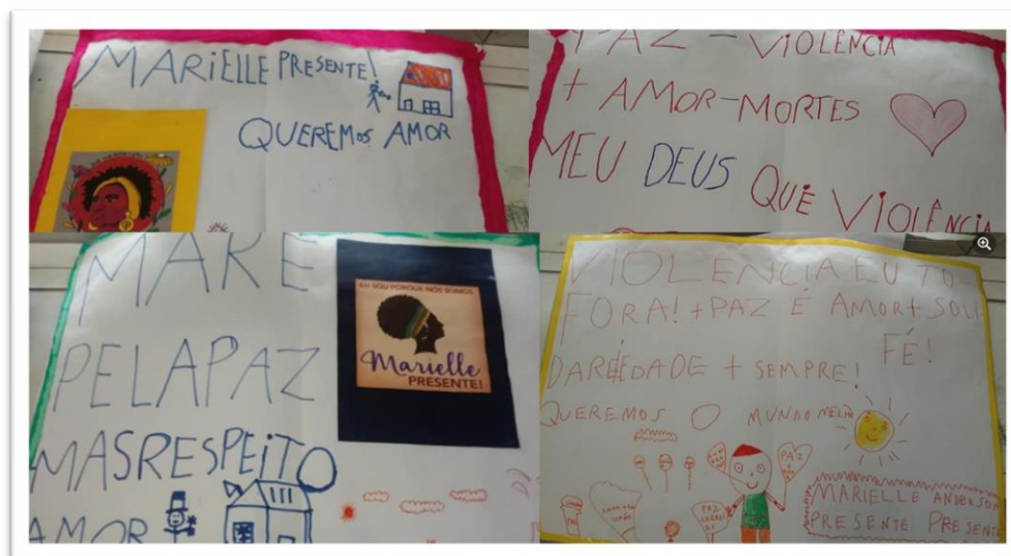 MARiELLE PRESENTE!
QUEREMOS AMOR
PAZ - VIOLÊNCIA
+ AMOR-MORTES
MEU DEUS QUE VIOLÊNCIA
MARE
PELAPAZ
MASRESPEiTO
AMOR
EU SOU PORQUE NÓS SOMOS.
Marielle
PRESENTE!
VIOLENCIA EU TO
FORA! + PAZ É AMOR + SOLI
DARIEDADE + SEMPRE! FÉ!
QUEREMOS O MUNDO
PAZ
PAZ
MARIELLE ANDERSON
PRESENTE PRESENT